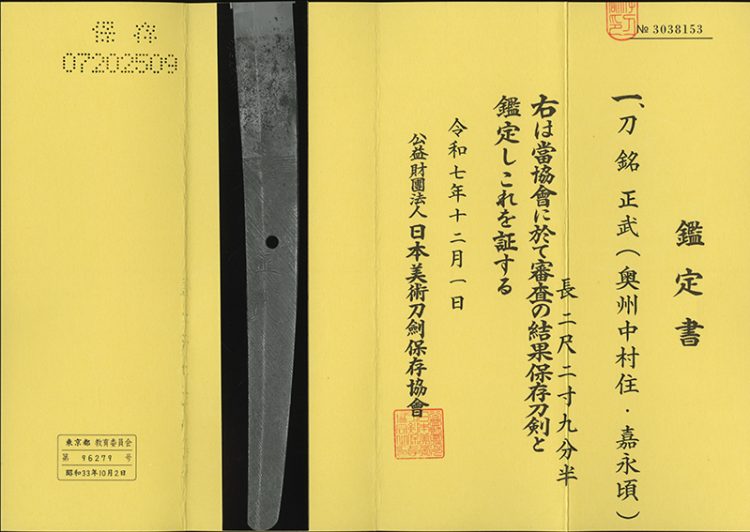 № 3038153
鑑定書
一、刀 銘 正武(奥州中村住・嘉永頃)
長 二尺二寸九分半
右は當協會に於て審査の結果保存刀剣と
鑑定しこれを証する
令和七年十二月一日
公益財團法人 日本美術刀劍保存協會
保存
07202509
東京都 教育委員会
第 96279 号
昭和33年10月2日